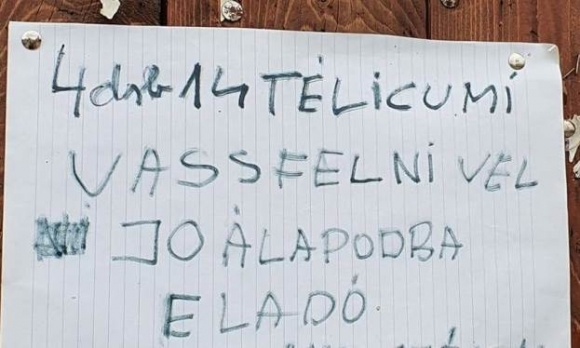 4 drb 14 TÉLICUMÍ
VASSFELNI VEL
JO ÁLAPODBA
ELADÓ.